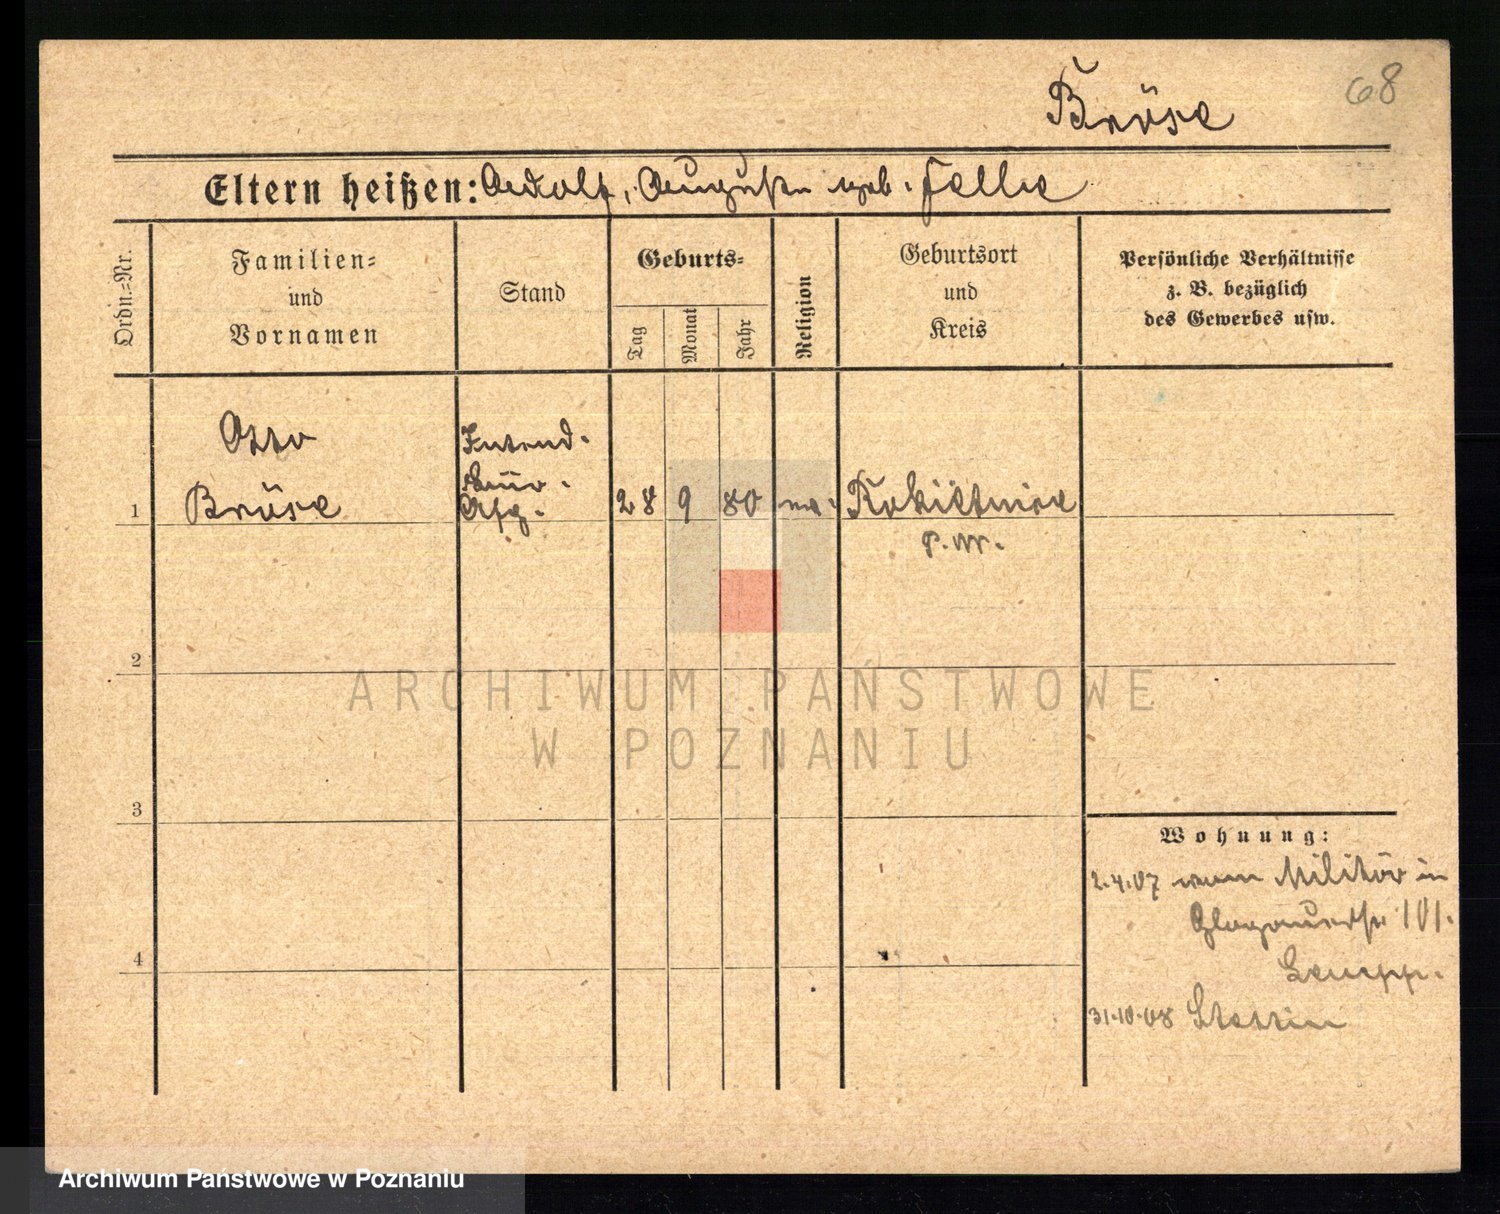 68
Bröse
Eltern heißen: Adolf, Auguste geb. Felke
Ordn.=Nr.
Familien=
und
Vornamen
Stand
Geburts=
Tag
Monat
Jahr
Religion
Geburtsort
und
Kreis
Persönliche Verhältnisse
z. B. bezüglich
des Gewerbes usw.
Otto
Bröse
Intend.
Büro.
1
28
9
80
ev.
Rokietnice
P. W.
2
3
4
Wohnung:
2.4.07 vom Militär in
Glogauerstr 101.
31.10.08 Stettin
ARCHIWUM PAŃSTWOWE
W POZNANIU
Archiwum Państwowe w Poznaniu